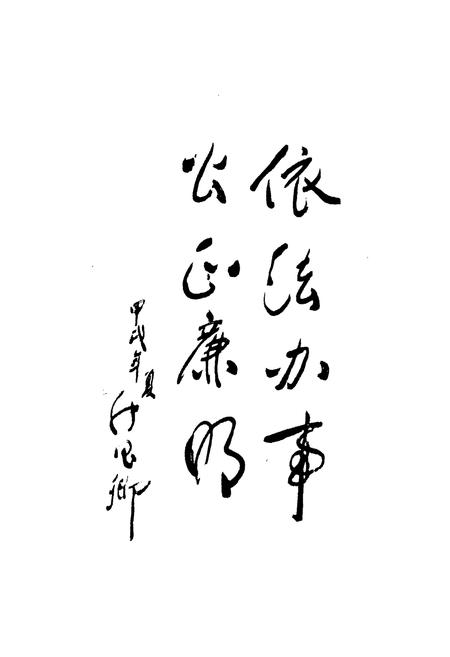 依法办事
公正廉明
甲戌年夏